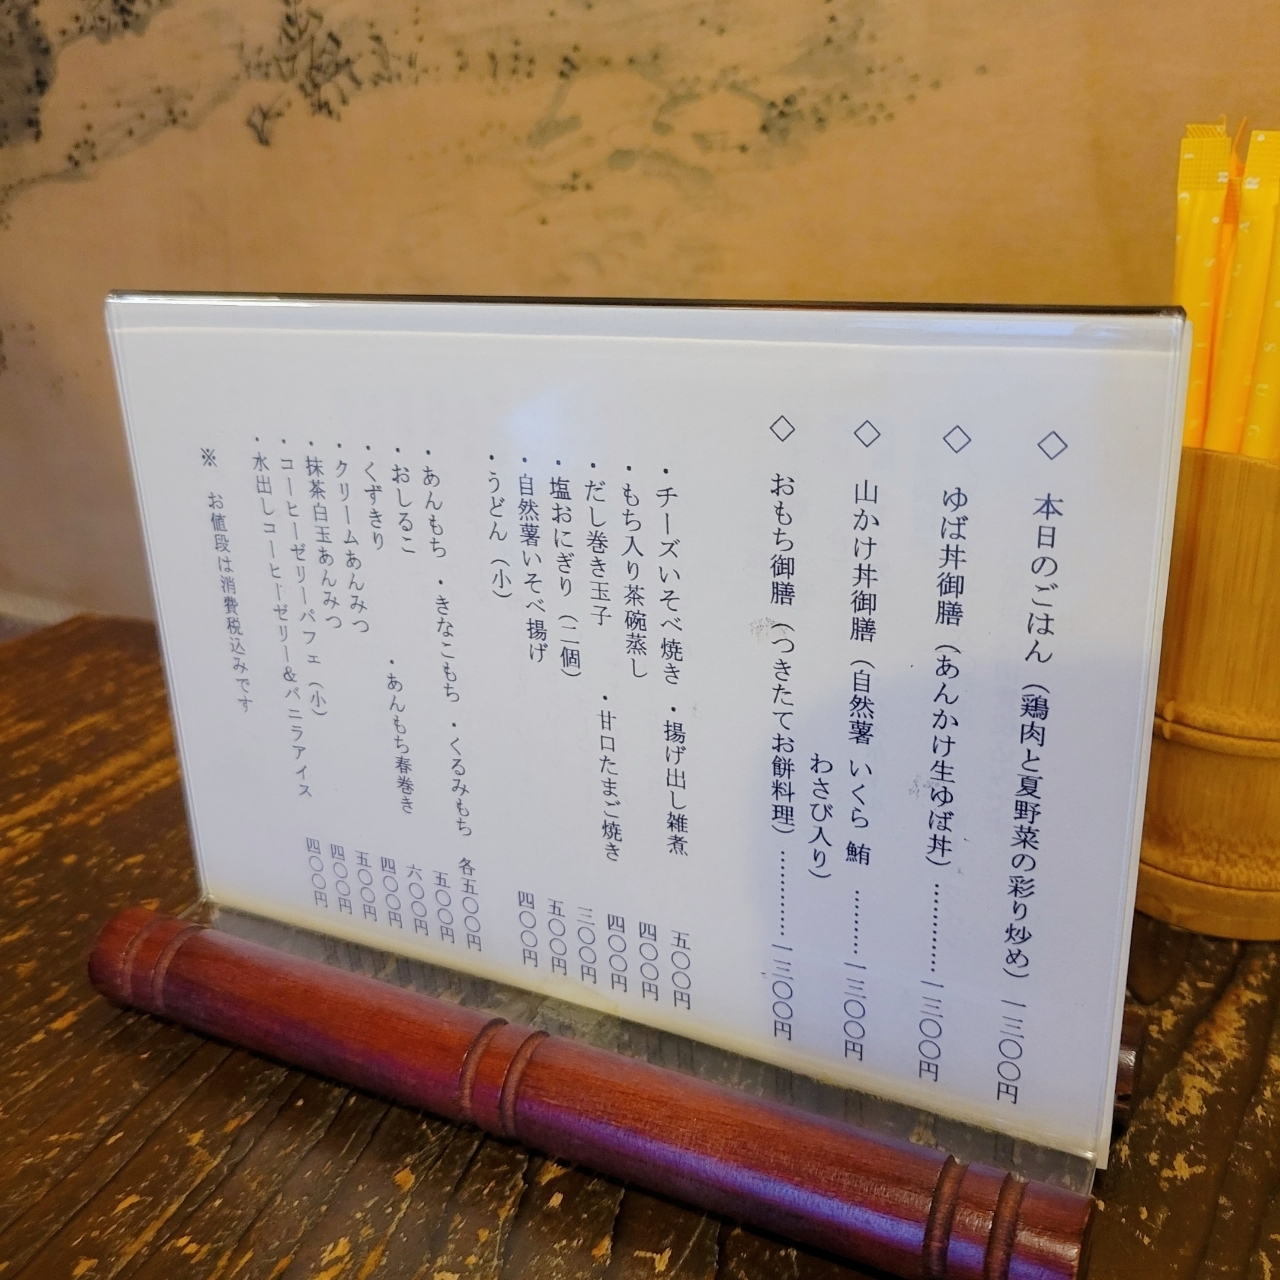 ◇ 本日のごはん（鶏肉と夏野菜の彩り炒め）一三〇〇円
◇ ゆば丼御膳（あんかけ生ゆば丼）…………一三〇〇円
◇ 山かけ丼御膳（自然薯 いくら 鮪 …………一三〇〇円
わさび入り）
◇ おもち御膳（つきたてお餅料理）…………一三〇〇円
・チーズいそべ焼き ・揚げ出し雑煮 五〇〇円
・もち入り茶碗蒸し 四〇〇円
・だし巻き玉子 ・甘口たまご焼き 四〇〇円
・塩おにぎり（二個） 三〇〇円
・自然薯いそべ揚げ 五〇〇円
・うどん（小） 四〇〇円
・あんもち ・きなこもち ・くるみもち 各五〇〇円
・おしるこ ・あんもち春巻き 五〇〇円
・くずきり 六〇〇円
・クリームあんみつ 四〇〇円
・抹茶白玉あんみつ 五〇〇円
・コーヒーゼリーパフェ（小） 四〇〇円
・水出しコーヒーゼリー＆バニラアイス 四〇〇円
※ お値段は消費税込みです